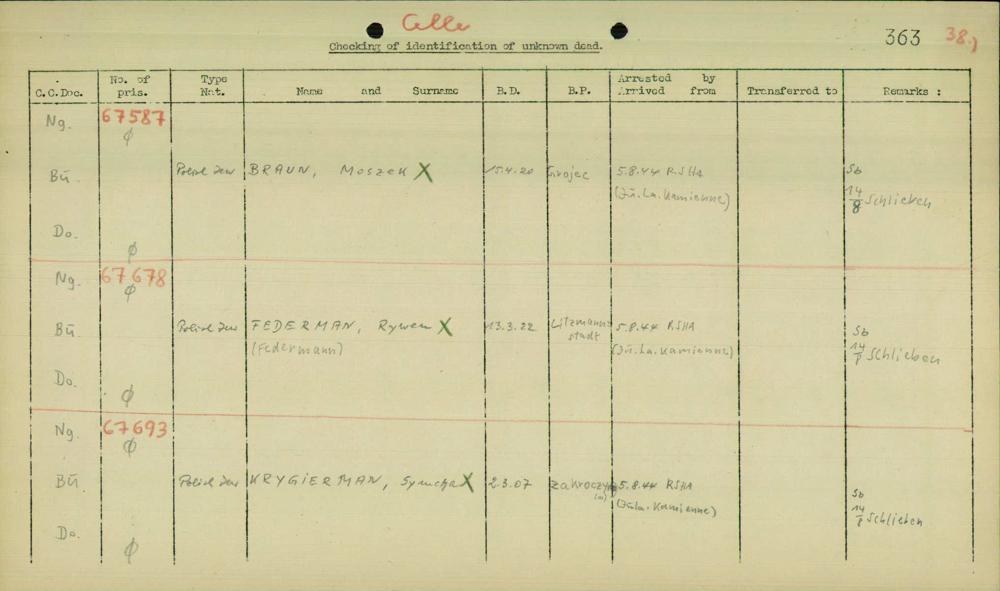 Celle
363 38.)
Checking of identification of unknown dead.
C.C.Doc. No. of pris. Type Nat. Name and Surname B.D. B.P. Arrested by Arrived from Transferred to Remarks :
Ng. 67587
ø
Bü. BRAUN, Moszek X 15.4.20 Grojec 5.8.44 RSHA Sb
(Jü.La.Kamienne) 14/8 Schlieben
Do.
ø
Ng. 67678
ø
Bü. FEDERMAN, Rywen X 13.3.22 Litzmannstadt 5.8.44 RSHA Sb
(Federmann) (Jü.La.Kamienne) 14/8 Schlieben
Do.
ø
Ng. 67693
ø
Bü. KRYGIERMAN, X 2.3.07 5.8.44 RSHA Sb
(Jü.La.Kamienne) 14/8 Schlieben
Do.
ø